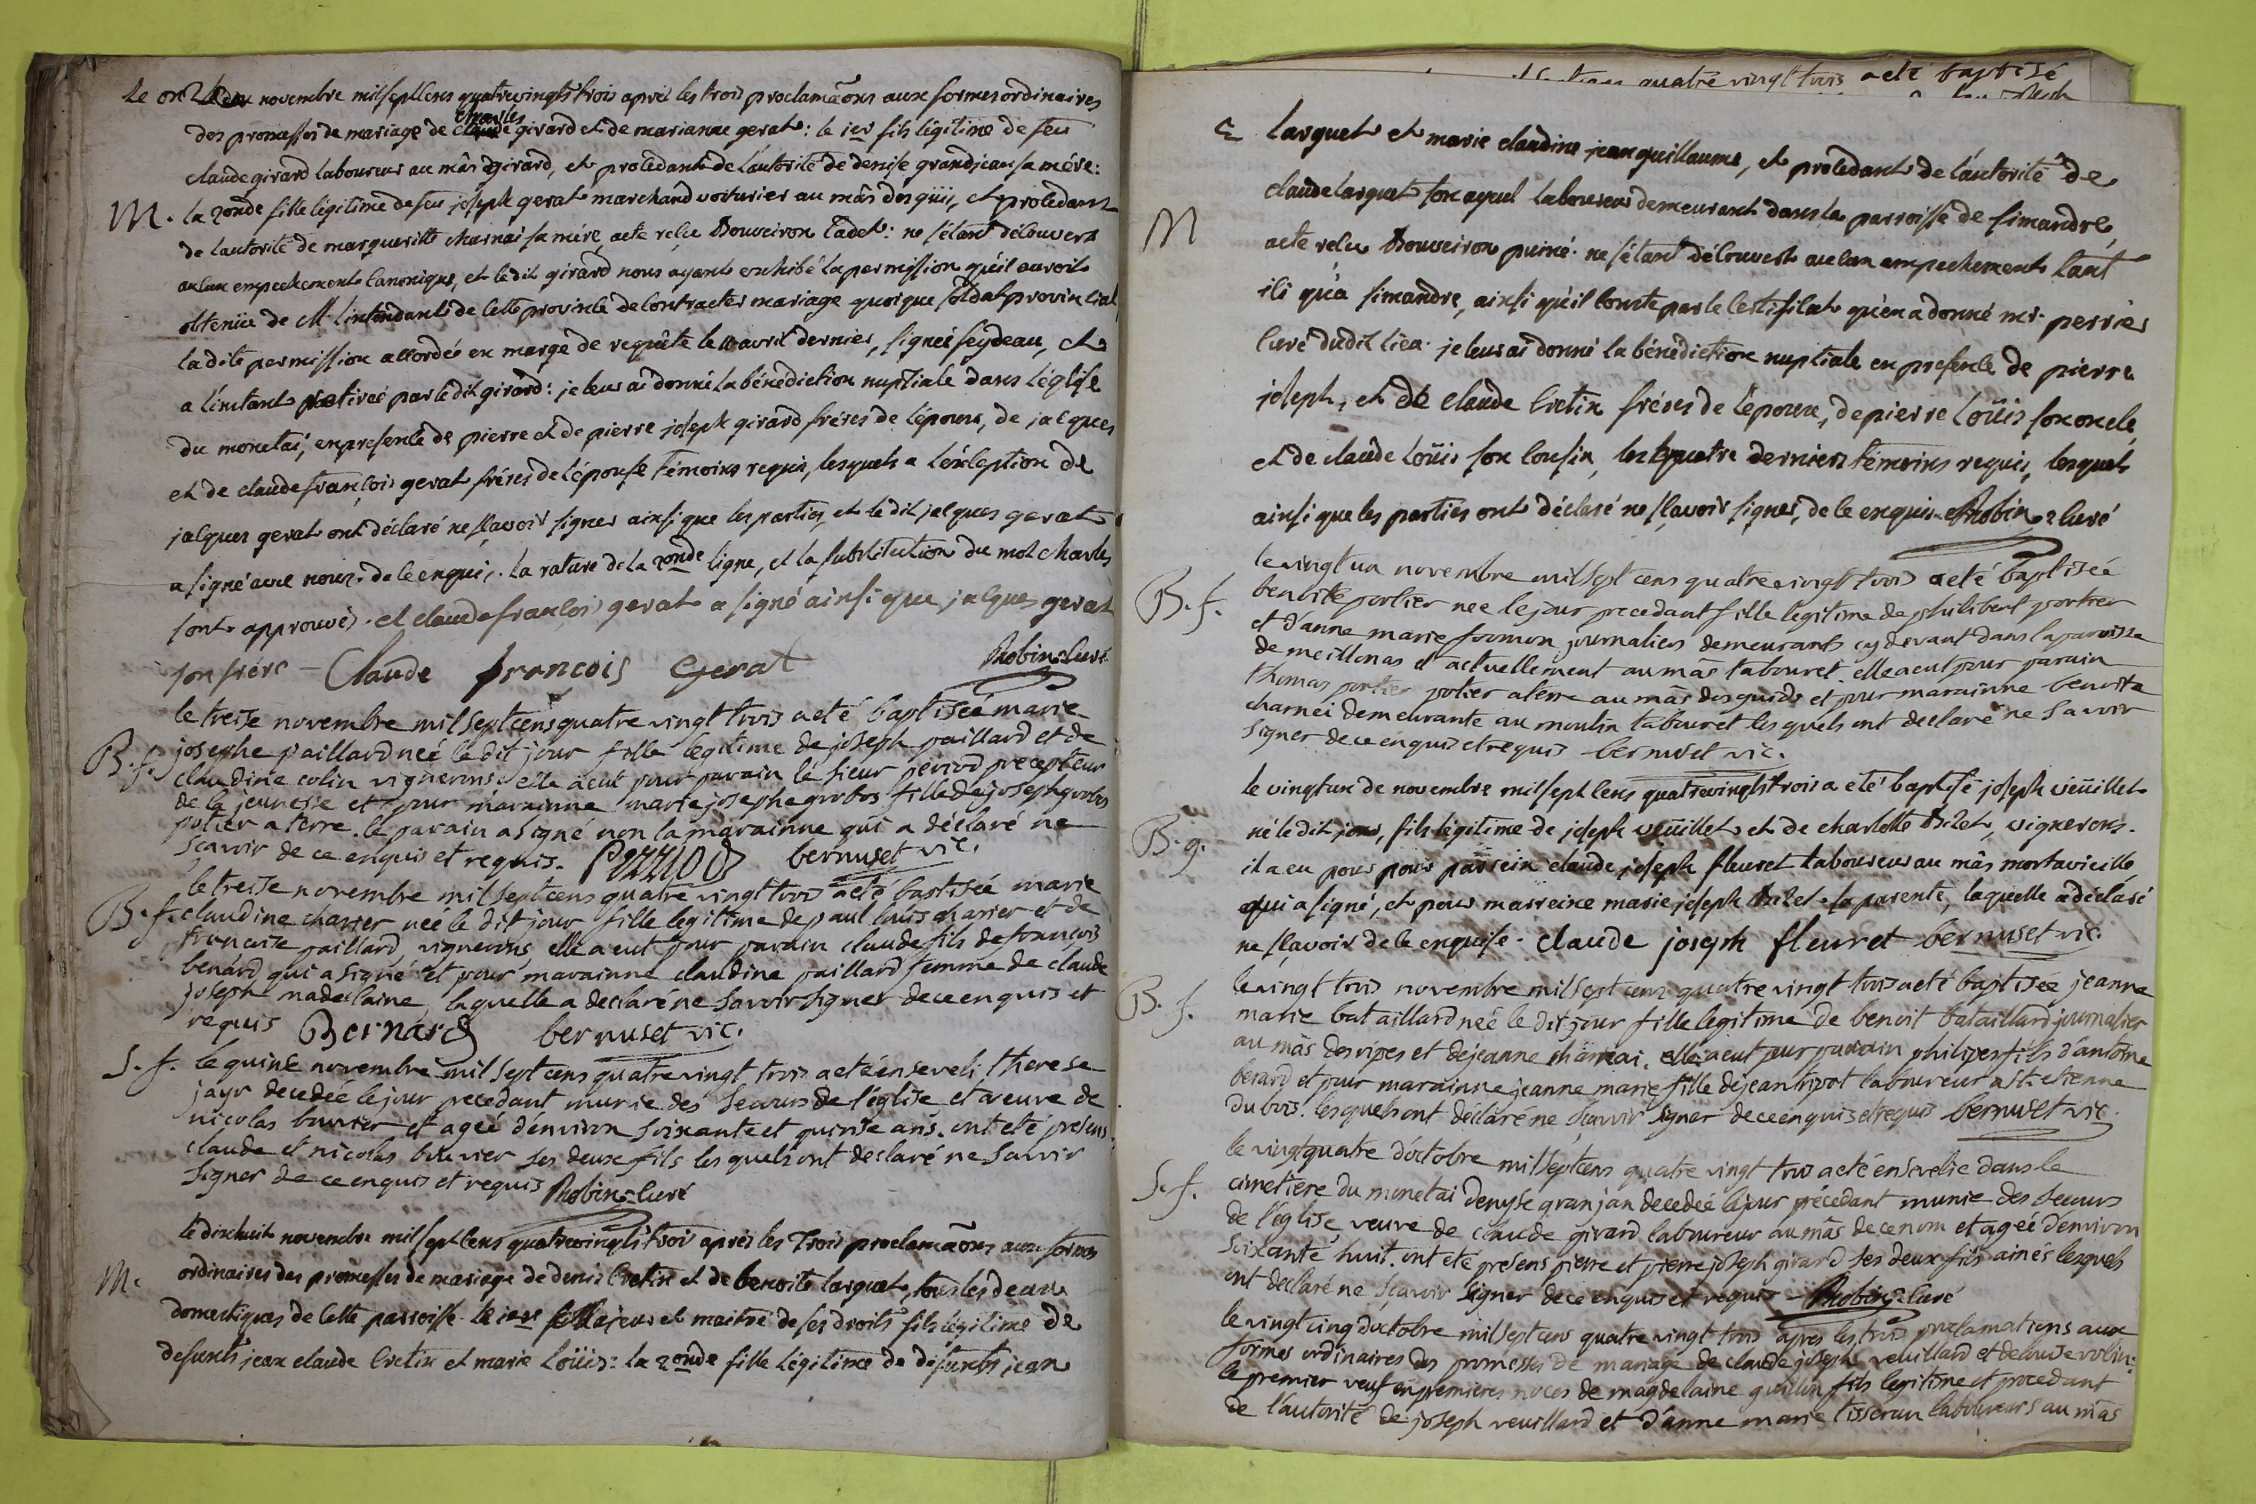 Le onze novembre mil sept cens quatrevingts trois aprés les trois proclamaõns aux formes ordinaires
des promesses de mariage de charles girard et de marianne gerat: le 1er fils légitime de feu
claude girard laboureur au mâs girard, et procedant de l'autorité de denise grandjean sa mére:
M. la 2onde fille légitime de feu joseph gerat marchand voiturier au mâs des güis, et procedant
de l'autorité de margueritte charnai sa mére, acte reçu Bouveiron cadet: ne s'étant découvert
aucun empechement canonique, et le dit girard nous ayant exhibé la permission qu'il auroit
obtenüe de Mr l'intendant de cette province de contracter mariage quoique soldat provincial
la dite permission accordée en marge de requête le avril dernier, signée feydeau, et
a l'instant retirée par le dit girard: je leur ai donné la bénédiction nuptiale dans l'église
du monetai, en presence de pierre et de pierre joseph girard fréres de l'époux, de jacques
et de claude françois gerat fréres de l'épouse témoins requis, lesquels a l'exception de
jacques gerat ont déclaré ne sçavoir signer ainsi que les parties, et le dit jacques gerat
a signé avec nous. de ce enquis. la rature de la 2onde ligne, et la substitution du mot charles
sont approuvés. et claude françois gerat a signé ainsi que jacques gerat
son frére - Claude francois Gerat Robin curé
le treise novembre mil sept cens quatre vingt trois a eté baptisée marie
B. f. josephe paillard neé le dit jour fille legitime de joseph paillard et de
claudine colin vignerons. elle a eut pour parain le sieur period precepteur
de la jeunesse et pour marainne marie josephe gorbos fille de joseph gorbos
potier a terre. le parain a signé non la marainne qui a déclaré ne
scavoir de ce enquis et requis. bernuset vic.
le treise novembre mil sept cens quatre vingt trois a eté baptisée marie
B. f. claudine charier neé le dit jour fille legitime de paul louis charier et de
francoise paillard, vignerons, elle a eut pour parain claude fils de francois
benard qui a signé et pour marainne claudine paillard femme de claude
joseph nadeclaine, laquelle a declaré ne savoir signer de ce enquis et
requis Bernard bernuset vic.
S. f. le quinse novembre mil sept cens quatre vingt trois a eté enseveli therese
jayr decedeé le jour precedant munie des secours de l'église et veuve de
nicolas bouvier et ageé d'environ soixante et quinse ans. ont eté presens
claude et nicolas bouvier ses deux fils les quels ont declaré ne savoir
signer de ce enquis et requis Robin curé
le dixhuit novembre mil sept cens quatrevingts trois aprés les trois proclamaõns aux formes
M. ordinaires des promesses de mariage de denis Cretin et de benoite larquet, tous les deux
domestiques de cette parroisse. le 1er majeur et maitre de ses droits fils légitime de
defunts jean claude Cretin et marie Loüis: la 2onde fille légitime de defunts jean
larquet et marie claudine jean guillaume, et procedant de l'autorité de
claude larquet son ayeul laboureur demeurant dans la parroisse de simandre,
M acte reçu Bouveiron puiné. ne s'étant découvert aucun empechement tant
ici qu'a simandre, ainsi qu'il conste par le certificat qu'en a donné mr. perrier
curé dudit lieu. je leur ai donné la bénédiction nuptiale en presence de pierre
joseph, et de claude Cretin fréres de l'epoux, de pierre Loüis son oncle,
et de claude Loüis son cousin, les quatre derniers témoins requis, lesquels
ainsi que les parties ont déclaré ne sçavoir signer, de ce enquis. Robin curé
le vingt un novembre mil sept cens quatre vingt trois a eté baptisée
B. f. benoite portier neé le jour precedant fille legitime de philibert portier
et d'anne marie fromon journaliers demeurants cy devant dans la paroisse
de meillonas et actuellement au mâs tabouret. elle a eut pour parain
thomas portier potier a terre au mâs des guids et pour marainne benoite
charnei demeurante au moulin tabouret les quels ont declaré ne savoir
signer de ce enquis et requis bernuset vic.
le vingt un de novembre mil sept cens quatrevingts trois a eté baptisé joseph veüillet
B. g. né le dit jour, fils légitime de joseph veüillet et de charlotte, vignerons.
il a eu pour pour parrein claude joseph fleuret laboureur au mâs mortavieille
qui a signé, et pour marreine marie joseph sa parente, laquelle a déclaré
ne sçavoir de ce enquise. claude joseph fleuret bernuset vic.
B. f. le vingt trois novembre mil sept cens quatre vingt trois a eté baptisée jeanne
marie bataillard neé le dit jour fille legitime de benoit bataillard journalier
au mâs des ripes et de jeanne charnai. elle a eut pour parain philipes fils d'antoine
berard et pour marainne jeanne marie fille de jean tripot laboureur a st. etienne
du bois. les quels ont déclaré ne sçavoir signer de ce enquis et requis bernuset vic.
le vingt quatre d'octobre mil sept cens quatre vingt trois a eté ensevelie dans le
S. f. cimetiere du monetai denyse granjan decedeé le jour précedant munie des secours
de l'église, veuve de claude girard laboureur au mâs de ce nom et ageé d'environ
soixante huit. ont eté presens pierre et pierre joseph girard ses deux fils ainés lesquels
ont declaré ne sçavoir signer de ce enquis et requis - Robin curé
le vingt cinq d'octobre mil sept cens quatre vingt trois apres les trois proclamations aux
formes ordinaires des promesses de mariage de claude joseph veuillard et de louise volin:
le premier veuf en premieres noces de magdelaine guillin fils legitime et procedant
de l'autorité de joseph veuillard et d'anne marie tisseran laboureurs au mâs